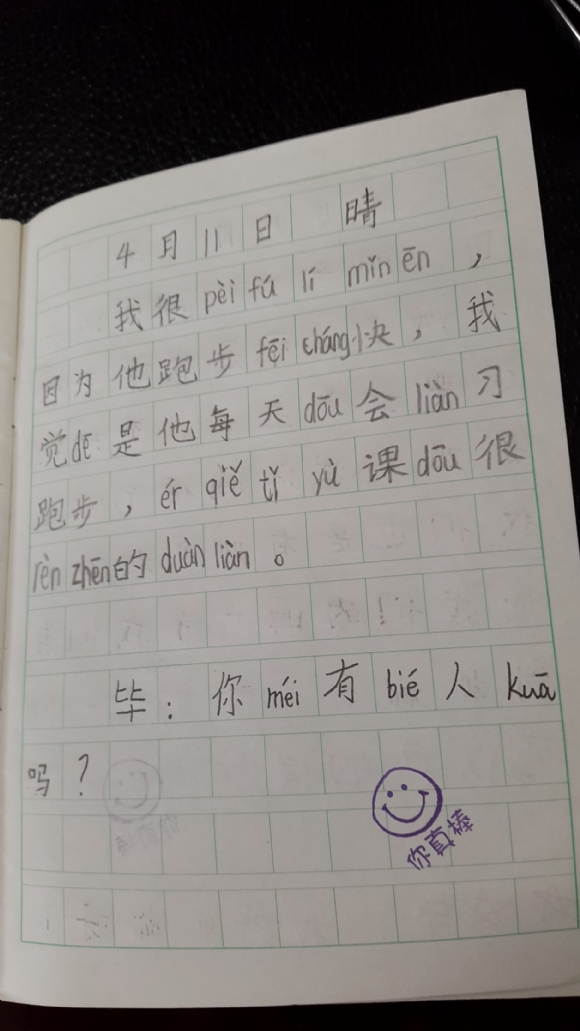 4月11日 晴
我很pèi fú lí mǐn ēn，
因为他跑步fēi cháng快，我
觉dē是他每天dōu会liàn习
跑步，ér qiě tǐ yù课dōu很
rèn zhēn的duàn liàn。
毕：你méi有bié人kuā
吗？
你真棒